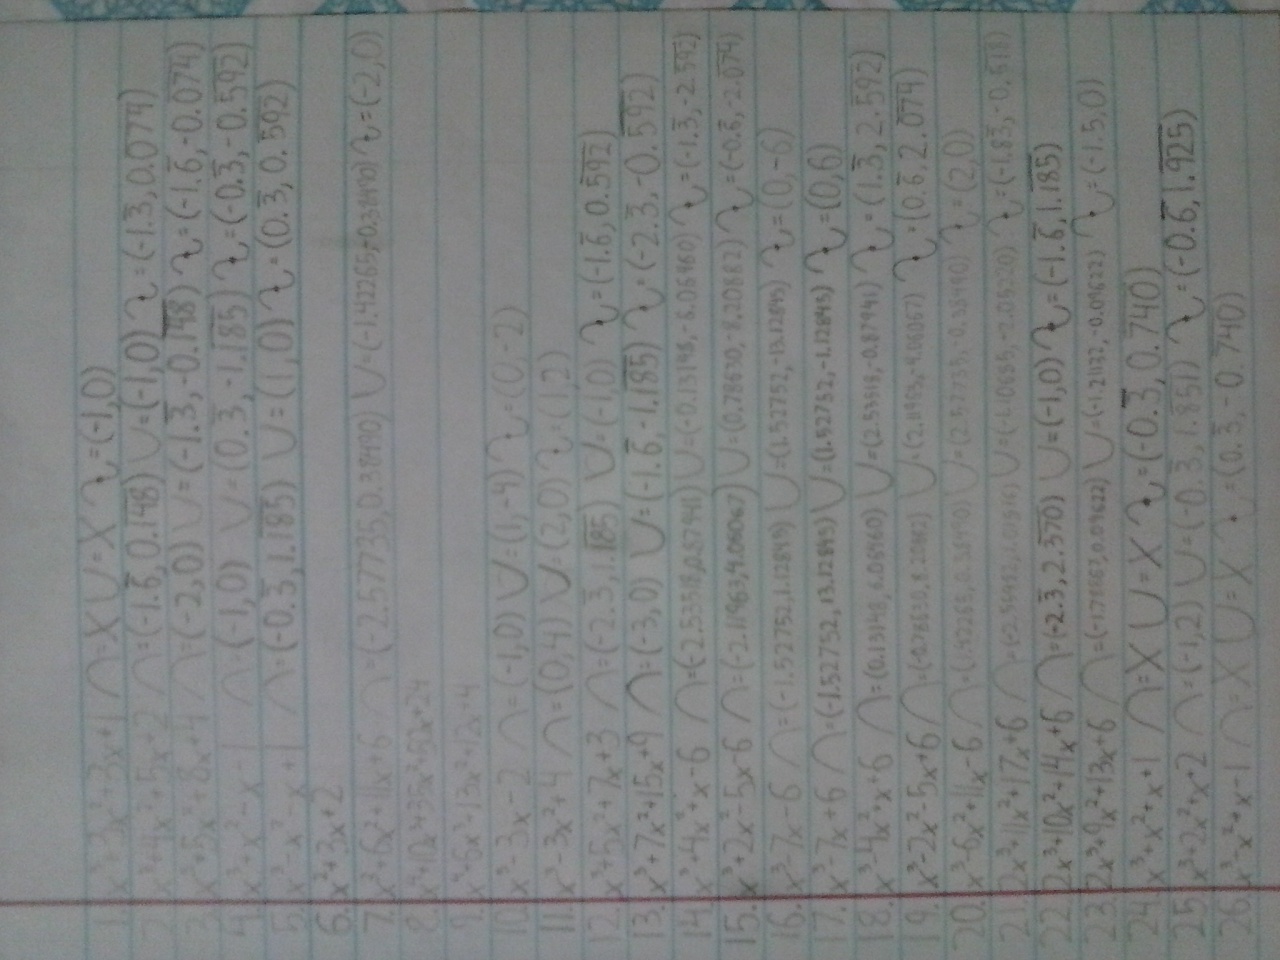 1. x³+3x²+3x+1 ∩=X ∪=X ∿=(-1,0)
2. x³+4x²+5x+2 ∩=(-1.6̅,0.1̅4̅8̅) ∪=(-1,0) ∿=(-1.3̅,0.0̅7̅4̅)
3. x³+5x²+8x+4 ∩=(-2,0) ∪=(-1.3̅,-0.1̅4̅8̅) ∿=(-1.6̅,-0.0̅7̅4̅)
4. x³+x²-x-1 ∩=(-1,0) ∪=(0.3̅,-1.1̅8̅5̅) ∿=(-0.3̅,-0.5̅9̅2̅)
5. x³-x²-x+1 ∩=(-0.3̅,1.1̅8̅5̅) ∪=(1,0) ∿=(0.3̅,0.5̅9̅2̅)
6. x²+3x+2
7. x³+6x²+11x+6 ∩=(-2.57735,0.38490) ∪=(-1.42265,-0.38490) ∿=(-2,0)
8. x⁴+10x³+35x²+50x+24
9. x⁴+6x³+13x²+12x+4
10. x³-3x-2 ∩=(-1,0) ∪=(1,-4) ∿=(0,-2)
11. x³-3x²+4 ∩=(0,4) ∪=(2,0) ∿=(1,2)
12. x³+5x²+7x+3 ∩=(-2.3̅,1.1̅8̅5̅) ∪=(-1,0) ∿=(-1.6̅,0.5̅9̅2̅)
13. x³+7x²+15x+9 ∩=(-3,0) ∪=(-1.6̅,-1.1̅8̅5̅) ∿=(-2.3̅,-0.5̅9̅2̅)
14. x³+4x²+x-6 ∩=(-2.53518,0.87941) ∪=(-0.13148,-6.06460) ∿=(-1.3̅,-2.5̅9̅2̅)
15. x³+2x²-5x-6 ∩=(-2.11963,4.06067) ∪=(0.78630,-8.20882) ∿=(-0.6̅,-2.0̅7̅4̅)
16. x³-7x-6 ∩=(-1.52752,1.12845) ∪=(1.52752,-13.12845) ∿=(0,-6)
17. x³-7x+6 ∩=(-1.52752,13.12845) ∪=(1.52752,-1.12845) ∿=(0,6)
18. x³-4x²+x+6 ∩=(0.13148,6.06460) ∪=(2.53518,-0.87941) ∿=(1.3̅,2.5̅9̅2̅)
19. x³-2x²-5x+6 ∩=(-0.78630,8.20882) ∪=(2.11963,-4.06067) ∿=(0.6̅,2.0̅7̅4̅)
20. x³-6x²+11x-6 ∩=(1.42265,0.38490) ∪=(2.57735,-0.38490) ∿=(2,0)
21. 2x³+11x²+17x+6
22. 2x³+10x²+14x+6 ∩=(-2.3̅,2.3̅7̅0̅) ∪=(-1,0) ∿=(-1.6̅,1.1̅8̅5̅)
23. 2x³+9x²+13x+6 ∩=(-1.78867,0.09622) ∪=(-1.21132,-0.09622) ∿=(-1.5,0)
24. x³+x²+x+1 ∩=X ∪=X ∿=(-0.3̅,0.7̅4̅0̅)
25. x³+2x²+x+2 ∩=(-1,2) ∪=(-0.3̅,1.8̅5̅1̅) ∿=(-0.6̅,1.9̅2̅5̅)
26. x³-x²+x-1 ∩=X ∪=X ∿=(0.3̅,-0.7̅4̅0̅)